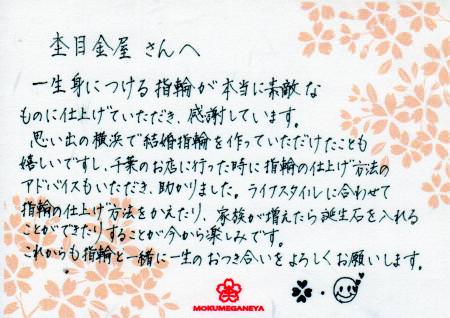 杢目金屋 さんへ
一生身につける指輪が本当に素敵な
ものに仕上げていただき、感謝しています。
思い出の横浜で結婚指輪を作っていただけたことも
嬉しいですし、千葉のお店に行った時に指輪の仕上げ方法の
アドバイスもいただき、助かりました。ライフスタイルに合わせて
指輪の仕上げ方法をかえたり、家族が増えたら誕生石を入れる
ことができたりすることが今から楽しみです。
これからも指輪と一緒に一生のおつき合いをよろしくお願いします。
MOKUMEGANEYA